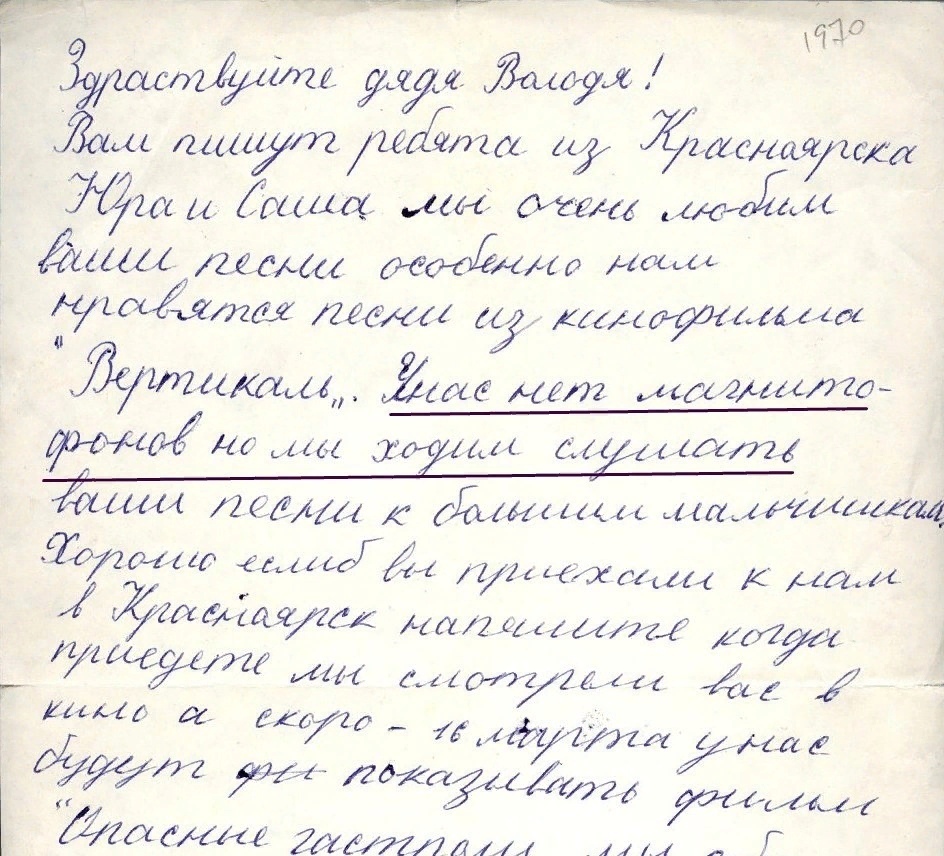 1970
Здраствуйте дядя Володя!
Вам пишут ребята из Красноярска
Юра и Саша мы очень любим
ваши песни особенно нам
нравятся песни из кинофильма
"Вертикаль„. Унас нет магнито-
фонов но мы ходим слушать
ваши песни к большим мальчишкам,
Хорошо еслиб вы приехали к нам
в Красноярск напишите когда
приедете мы смотрели вас в
кино а скоро - 16 марта унас
будут фи показывать фильм
"Опасные гастроли мы